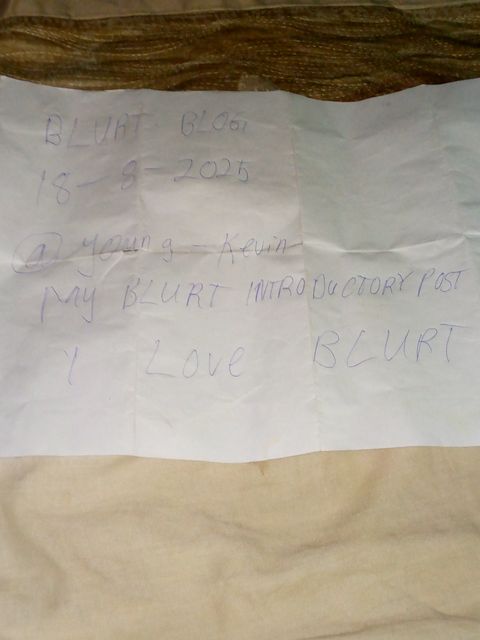 BLURT BLOG
18-8-2025
@young-Kevin
MY BLURT INTRODUCTORY POST
I Love BLURT